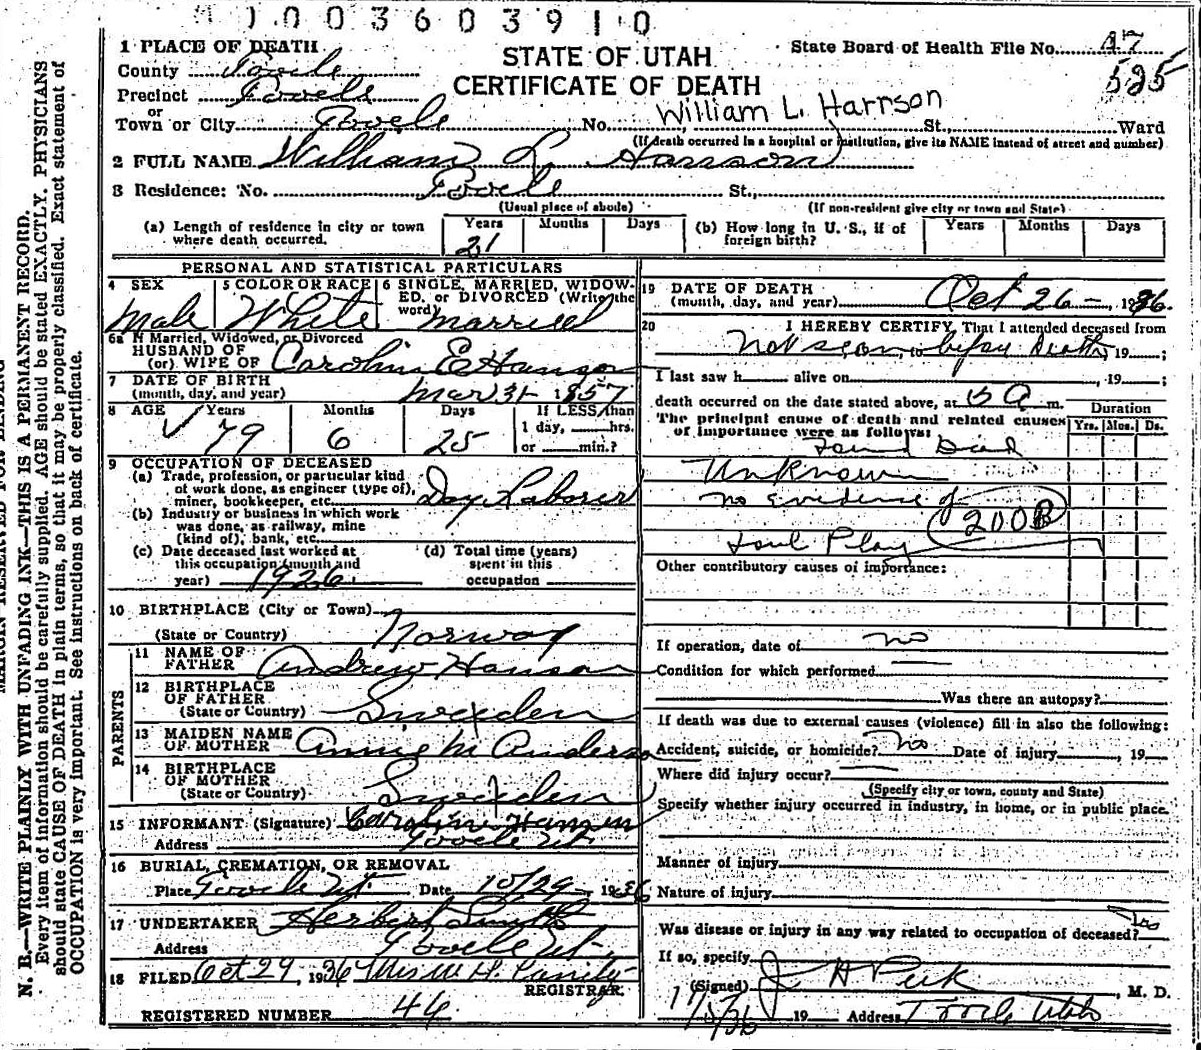 1003603910
STATE OF UTAH
CERTIFICATE OF DEATH
State Board of Health File No. 47
525
1 PLACE OF DEATH
County Tooele
Precinct Tooele
or
Town or City Tooele No. William L. Harrson St., Ward
(If death occurred in a hospital or institution, give its NAME instead of street and number)
2 FULL NAME William L. Hansson
3 Residence: No. Tooele St.,
(Usual place of abode) (If non-resident give city or town and State)
(a) Length of residence in city or town where death occurred. Years 21 Months Days
(b) How long in U. S., if of foreign birth? Years Months Days
PERSONAL AND STATISTICAL PARTICULARS
4 SEX Male
5 COLOR OR RACE White
6 SINGLE, MARRIED, WIDOWED, or DIVORCED (Write the word) married
6a If Married, Widowed, or Divorced
HUSBAND OF
(or) WIFE OF Carolin E Hanson
7 DATE OF BIRTH
(month, day, and year) Mar 31 1857
8 AGE Years 79 Months 6 Days 25 If LESS than 1 day, hrs. or min.?
9 OCCUPATION OF DECEASED
(a) Trade, profession, or particular kind of work done, as engineer (type of), miner, bookkeeper, etc. Day Laborer
(b) Industry or business in which work was done, as railway, mine (kind of), bank, etc.
(c) Date deceased last worked at this occupation (month and year) 1926
(d) Total time (years) spent in this occupation
10 BIRTHPLACE (City or Town)
(State or Country) Norway
PARENTS
11 NAME OF FATHER Andrew Hanson
12 BIRTHPLACE OF FATHER
(State or Country) Sweden
13 MAIDEN NAME OF MOTHER Annie M Anderson
14 BIRTHPLACE OF MOTHER
(State or Country) Sweden
15 INFORMANT (Signature) Caroline Hansen
Address Tooele Ut
16 BURIAL, CREMATION, OR REMOVAL
Place Tooele Ut. Date 10/29, 1936
17 UNDERTAKER Herbert Smith
Address Tooele Ut.
18 FILED Oct 29, 1936 Mrs W. H.
REGISTRAR
REGISTERED NUMBER 44
19 DATE OF DEATH
(month, day, and year) Oct 26 - 1936.
20 I HEREBY CERTIFY, That I attended deceased from
Not seen, to before Death, 19 ;
I last saw h alive on , 19 ;
death occurred on the date stated above, at 5 A m.
The principal cause of death and related causes of importance were as follows: Duration
Yrs. Mos. Ds.
Found Dead
Unknown
no Evidence of
200B
Foul Play
Other contributory causes of importance:
If operation, date of no
Condition for which performed
Was there an autopsy?
If death was due to external causes (violence) fill in also the following:
Accident, suicide, or homicide? No Date of injury , 19
Where did injury occur?
(Specify city or town, county and State)
Specify whether injury occurred in industry, in home, or in public place.
Manner of injury
Nature of injury
Was disease or injury in any way related to occupation of deceased? No
If so, specify
(Signed) J H Peck, M. D.
11/5/36 19 Address Tooele Utah
MARGIN RESERVED FOR BINDING
N. B.—WRITE PLAINLY WITH UNFADING INK—THIS IS A PERMANENT RECORD.
Every item of information should be carefully supplied. AGE should be stated EXACTLY. PHYSICIANS
should state CAUSE OF DEATH in plain terms, so that it may be properly classified. Exact statement of
OCCUPATION is very important. See instructions on back of certificate.